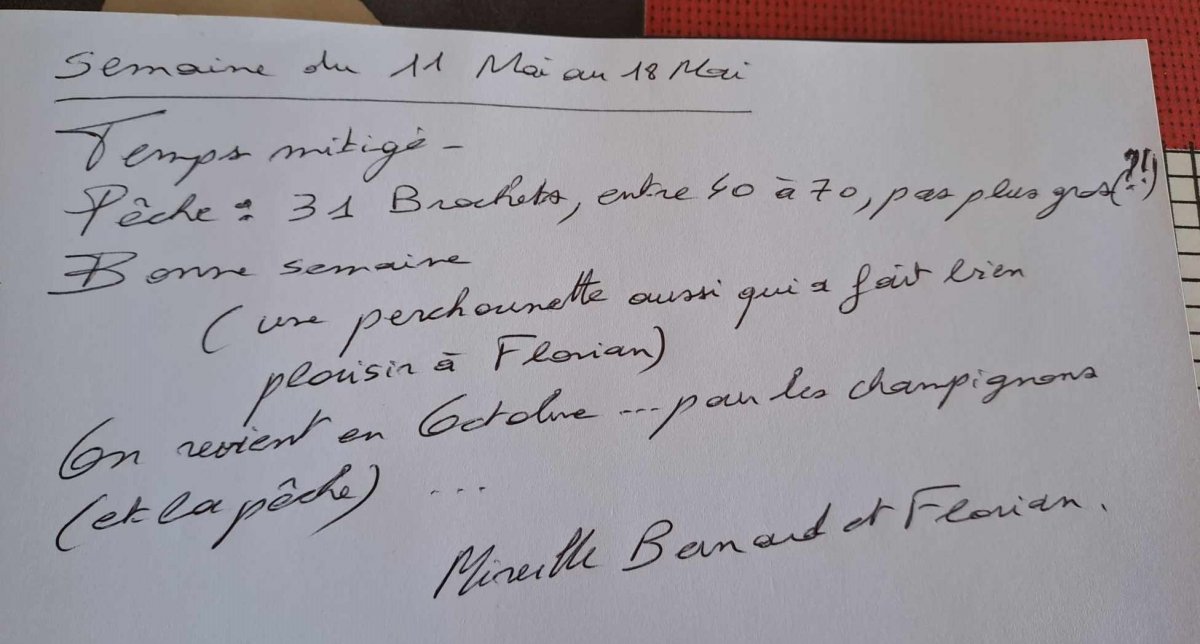 Semaine du 11 Mai au 18 Mai
Temps mitigé -
Pêche : 31 Brochets, entre 40 à 70, pas plus gros (?!)
Bonne semaine
(une perchounette aussi qui a fait bien
plaisir à Florian)
On revient en Octobre ... pour les champignons
(et la pêche) ...
Mireille Bernard et Florian.